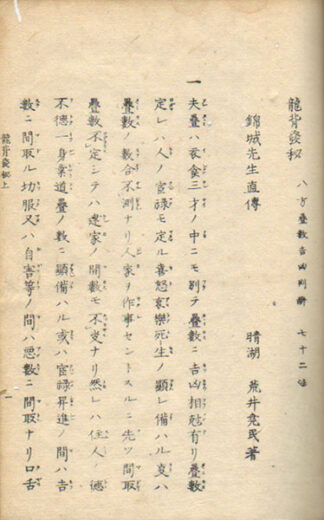 龍背發秘
八方疊數吉凶判断 七十二法
錦城先生直傳
晴湖 荒井堯民著
一
夫疊ハ衣食三才ノ中ニモ別テ疊數ニ吉凶相尅有リ疊數
定レハ人ノ官禄モ定ル喜怒哀樂死生ノ顕レ備ハル叓ハ
疊數ノ數合不測ナリ人家ヲ作事セントスルニ先ツ間取
疊數不定シテハ造家ノ間數モ不定ナリ然レハ住人ノ德
不德一身業道疊ノ數ニ顕備ハル或ハ官禄昇進ノ間ハ吉
數ニ間取ル切服又ハ自害等ノ間ハ悪數ニ間取ナリ口舌
龍背發秘上
一